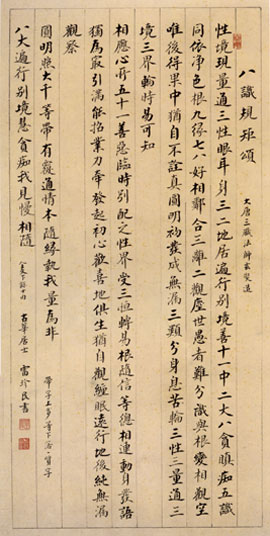 八識規矩頌
大唐三藏法師玄奘造
性境現量通三性眼耳身三二地居遍行別境善十一中二大八貪瞋痴五識
同依淨色根九緣七八好相鄰合三離二觀塵世愚者難分識與根變相觀空
唯後得果中猶自不詮真圓明初發成無漏三類分身息苦輪三性三量通三
境三界輪時易可知
相應心所五十一善惡臨時別配之性界受三恆轉易根隨信等總相連動身發語
獨為最引滿能招業力牽發起初心歡喜地俱生猶自觀纏眠遠行地後純無漏
觀察
圓明照大千等帶有覆通情本隨緣執我量為非
八大遍行別境慧貪痴我見慢相隨
帶字上多等下落質字
古華居士 雷珍民書